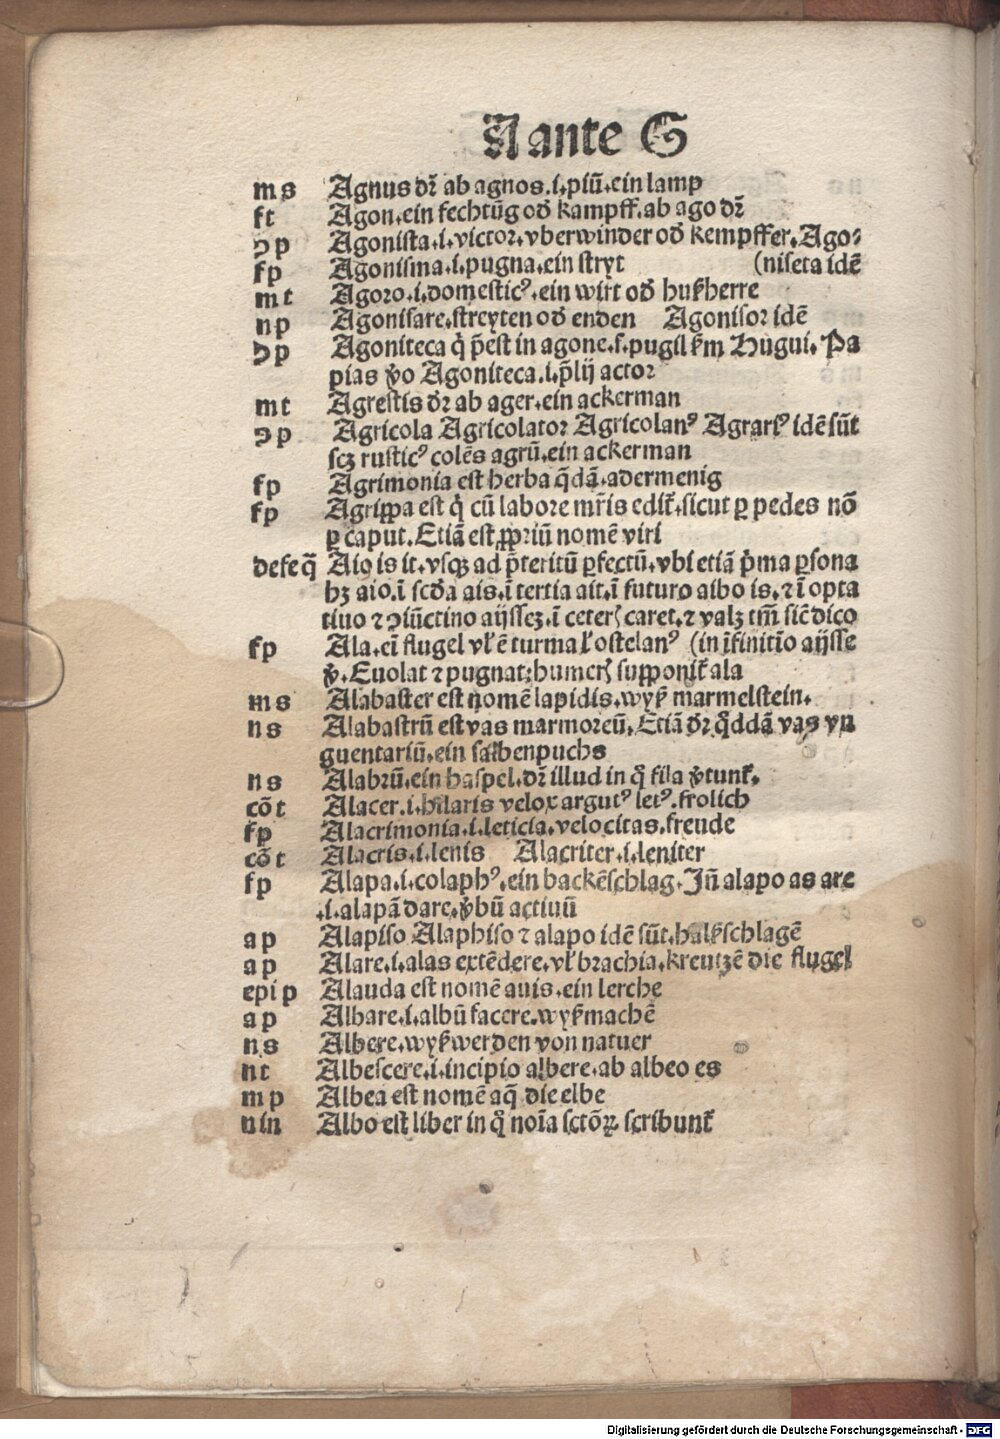 A ante G
m s Agnus dr̄ ab agnos.i.piū.ein lamp
f t Agon.ein fechtūg od̄ kampff.ab ago dr̄
ꝯ p Agonista.i.victor.vberwinder od̄ kempffer.Ago⸗
f p Agonisma.i.pugna.ein stryt (niseta idē
m t Agoro.i.domesticꝰ.ein wirt od̄ hußherre
n p Agonisare.streyten od̄ enden Agonisor idē
ꝯ p Agoniteca q̇ p̄est in agone.s.pugil ẜm Hugui. Pa
pias v̄o Agoniteca.i.p̄lij actor
m t Agrestis dr̄ ab ager.ein ackerman
ꝯ p Agricola Agricolator Agricolanꝰ Agrariꝰ idē sūt
scꝫ rusticꝰ colēs agrū.ein ackerman
f p Agrimonia est herba q̄dā.adermenig
f p Agrippa est q̇ cū labore mr̄is edit̄.sicut ꝑ pedes nō
ꝑ caput. Etiā est ꝓpriū nomē viri
defeq̄ Aio is it.vsqꝫ ad p̄teritū ꝑfectū.vbi etiā p̄ma ꝑsona
hꝫ aio.ī scd̄a ais.ī tertia ait.ī futuro aibo is.⁊ ī opta
tiuo ⁊ ꝯiūctino aijsseꝫ.ī ceterꝭ caret.⁊ valꝫ tm̄ sic̄ dico
f p Ala.eī flugel vl̄ ē turma l̄ ostelanꝰ (in īfinitīo aijsse
v̄. Euolat ⁊ pugnat:humerꝭ supponit̄ ala
m s Alabaster est nomē lapidis.wyß marmelstein.
n s Alabastrū est vas marmoreū. Etiā dr̄ q̇ddā vas vn
guentariū.ein salbenpuchs
n s Alabrū.ein haspel.dr̄ illud in q̊ fila v̄tunt̄.
cō t Alacer.i.hilaris velox argutꝰ letꝰ.frolich
f p Alacrimonia.i.leticia.velocitas.freude
cō t Alacris.i.lenis Alacriter.i.leniter
f p Alapa.i.colaphꝰ.ein backēschlag. Jn̄ alapo as are
.i.alapā dare.v̄bū actiuū
a p Alapiso Alaphiso ⁊ alapo idē sūt.halßschlagē
a p Alare.i.alas extēdere.vl̄ brachia.kreutzē die flugel
epi p Alauda est nomē auis.ein lerche
a p Albare.i.albū facere.wyß machē
n s Albere.wyß werden von natuer
n t Albescere.i.incipio albere.ab albeo es
m p Albea est nomē aq̄ die elbe
nin Albo est liber in q̊ noīa sctōꝝ scribunt̄
Digitalisierung gefördert durch die Deutsche Forschungsgemeinschaft - DFG